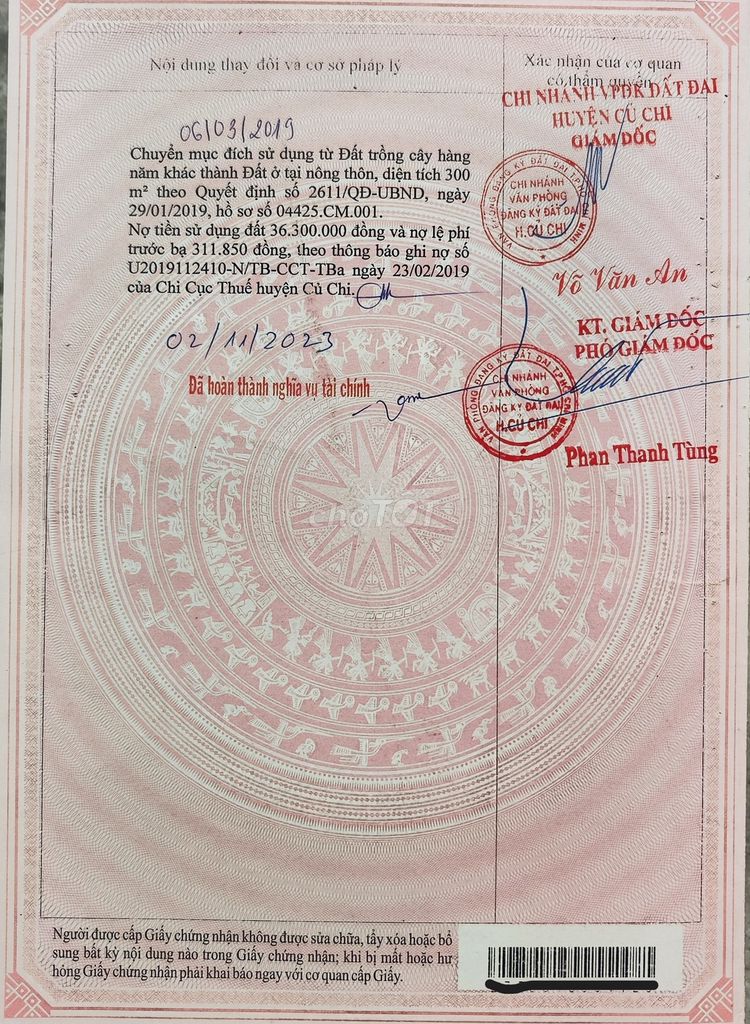 Nội dung thay đổi và cơ sở pháp lý
Xác nhận của cơ quan
có thẩm quyền
CHI NHÁNH VPĐK ĐẤT ĐAI
HUYỆN CỦ CHI
GIÁM ĐỐC
06/03/2019
Chuyển mục đích sử dụng từ Đất trồng cây hàng
năm khác thành Đất ở tại nông thôn, diện tích 300
m² theo Quyết định số 2611/QĐ-UBND, ngày
29/01/2019, hồ sơ số 04425.CM.001.
Nợ tiền sử dụng đất 36.300.000 đồng và nợ lệ phí
trước bạ 311.850 đồng, theo thông báo ghi nợ số
U2019112410-N/TB-CCT-TBa ngày 23/02/2019
của Chi Cục Thuế huyện Củ Chi.
VĂN PHÒNG ĐĂNG KÝ ĐẤT ĐAI T.P HỒ CHÍ MINH
CHI NHÁNH
VĂN PHÒNG
ĐĂNG KÝ ĐẤT ĐAI
H.CỦ CHI
Võ Văn An
02/11/2023
Đã hoàn thành nghĩa vụ tài chính
KT. GIÁM ĐỐC
PHÓ GIÁM ĐỐC
VĂN PHÒNG ĐĂNG KÝ ĐẤT ĐAI T.P HỒ CHÍ MINH
CHI NHÁNH
VĂN PHÒNG
ĐĂNG KÝ ĐẤT ĐAI
H.CỦ CHI
Phan Thanh Tùng
choTỐT
Người được cấp Giấy chứng nhận không được sửa chữa, tẩy xóa hoặc bổ
sung bất kỳ nội dung nào trong Giấy chứng nhận; khi bị mất hoặc hư
hỏng Giấy chứng nhận phải khai báo ngay với cơ quan cấp Giấy.